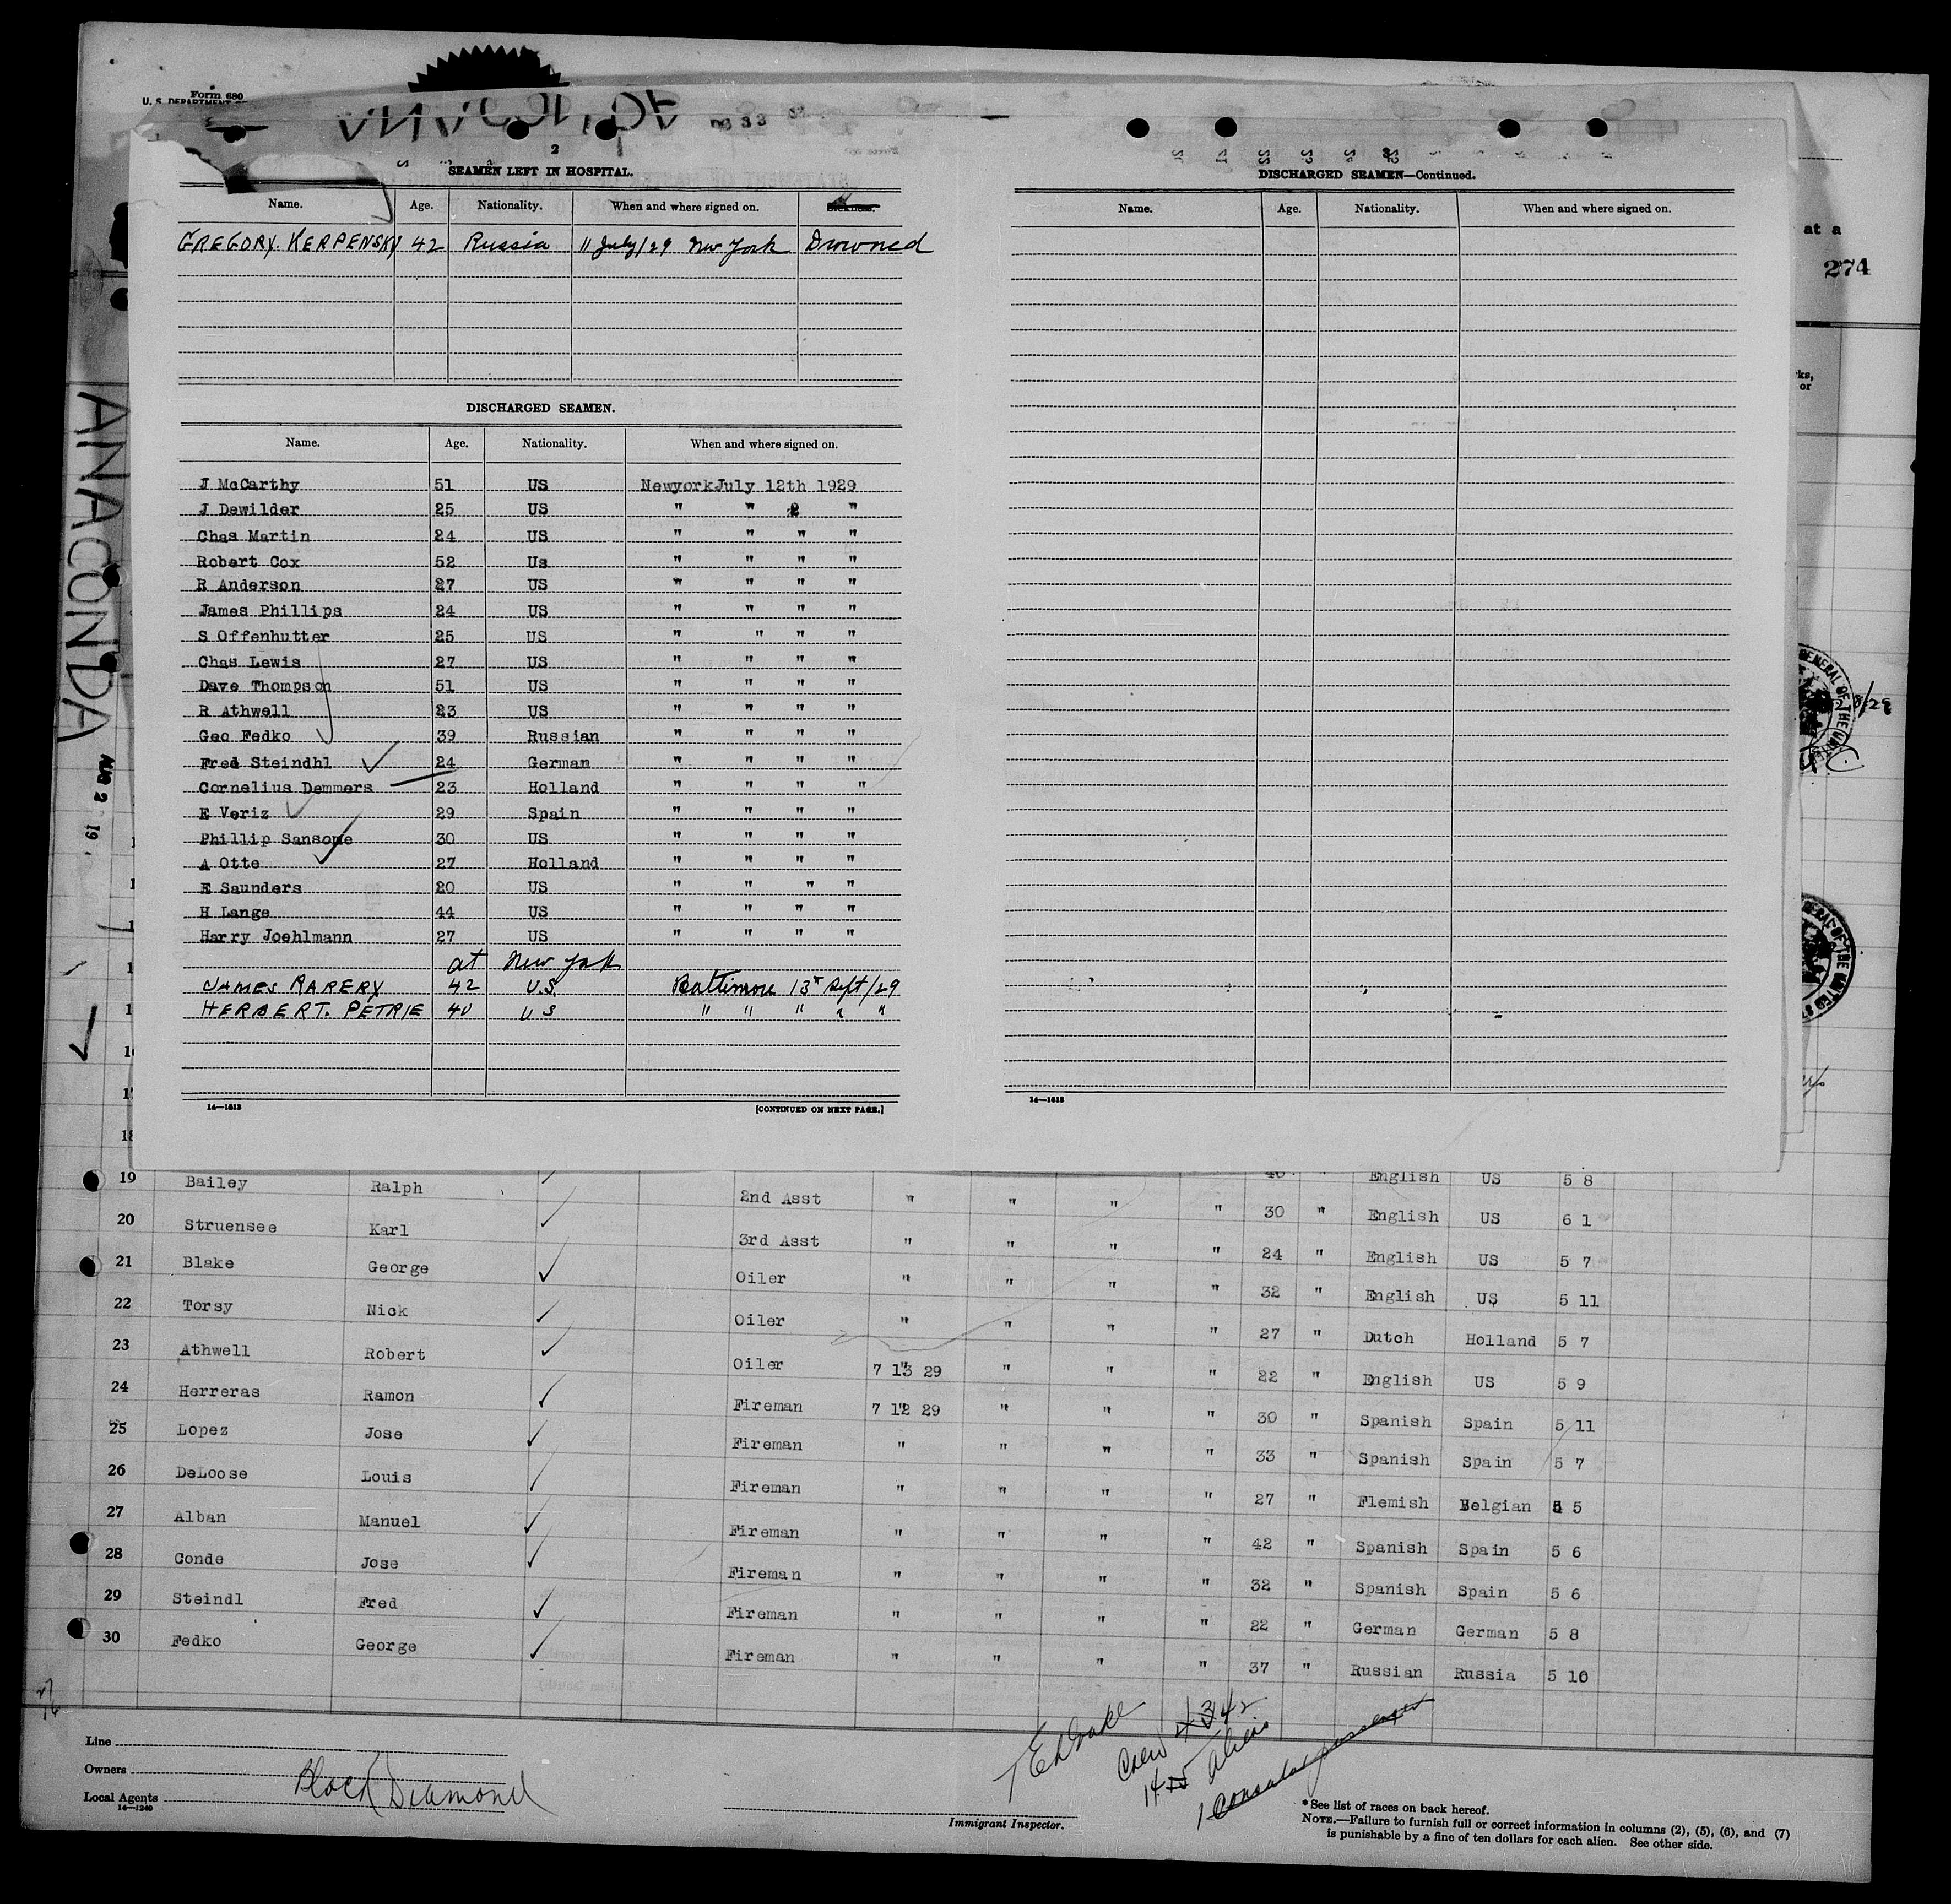 Form 680
U. S. DEPARTMENT OF
ANACONDA
2
SEAMEN LEFT IN HOSPITAL.
Name. Age. Nationality. When and where signed on. Sickness.
GREGORY. KERPENSKY 42 Russia 11 July/29 New York Drowned
DISCHARGED SEAMEN.
Name. Age. Nationality. When and where signed on.
J McCarthy 51 US NewyorkJuly 12th 1929
J Dewilder 25 US " " 2 "
Chas Martin 24 US " " " "
Robert Cox 52 Us " " " "
R Anderson 27 US " " " "
James Phillips 24 US " " " "
S Offenhutter 25 US " " " "
Chas Lewis 27 US " " " "
Dave Thompson 51 US " " " "
R Athwell 23 US " " " "
Geo Fedko 39 Russian " " " "
Fred Steindhl 24 German " " " "
Cornelius Demmers 23 Holland " " " "
E Veriz 29 Spain " " " "
Phillip Sansome 30 US " " " "
A Otte 27 Holland " " " "
E Saunders 20 US " " " "
H Lange 44 US " " " "
Harry Joehlmann 27 US " " " "
at New York
JAMES RARERY 42 U.S. Baltimore 13th Sept/29
HERBERT. PETRIE 40 U S " " " " "
14—1613 [CONTINUED ON NEXT PAGE.]
3
DISCHARGED SEAMEN—Continued.
Name. Age. Nationality. When and where signed on.
14—1613
at a
274
ks,
or
ANACONDA
AUG 2 19
18
19 Bailey Ralph 2nd Asst " " " " 40 " English US 5 8
20 Struensee Karl 3rd Asst " " " " 30 " English US 6 1
21 Blake George Oiler " " " " 24 " English US 5 7
22 Torsy Nick Oiler " " " " 32 " English US 5 11
23 Athwell Robert Oiler 7 13 29 " " " 27 " Dutch Holland 5 7
24 Herreras Ramon Fireman 7 12 29 " " " 22 " English US 5 9
25 Lopez Jose Fireman " " " " 30 " Spanish Spain 5 11
26 DeLoose Louis Fireman " " " " 33 " Spanish Spain 5 7
27 Alban Manuel Fireman " " " " 27 " Flemish Belgian 5 5
28 Conde Jose Fireman " " " " 42 " Spanish Spain 5 6
29 Steindl Fred Fireman " " " " 32 " Spanish Spain 5 6
30 Fedko George Fireman " " " " 22 " German German 5 8
37 " Russian Russia 5 10
Line
Owners
Local Agents Black Diamond
14—1240
Crew 42
14 Aliens
1 Consular passenger
Immigrant Inspector.
*See list of races on back hereof.
NOTE.—Failure to furnish full or correct information in columns (2), (5), (6), and (7)
is punishable by a fine of ten dollars for each alien. See other side.